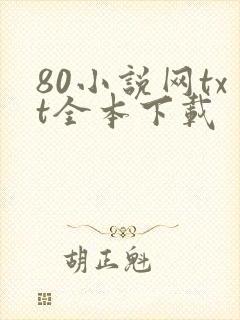 80小说网tx
t全本下载
胡正魁